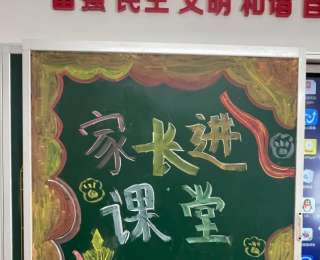 富强 民主 文明 和谐 自
家长进
课堂